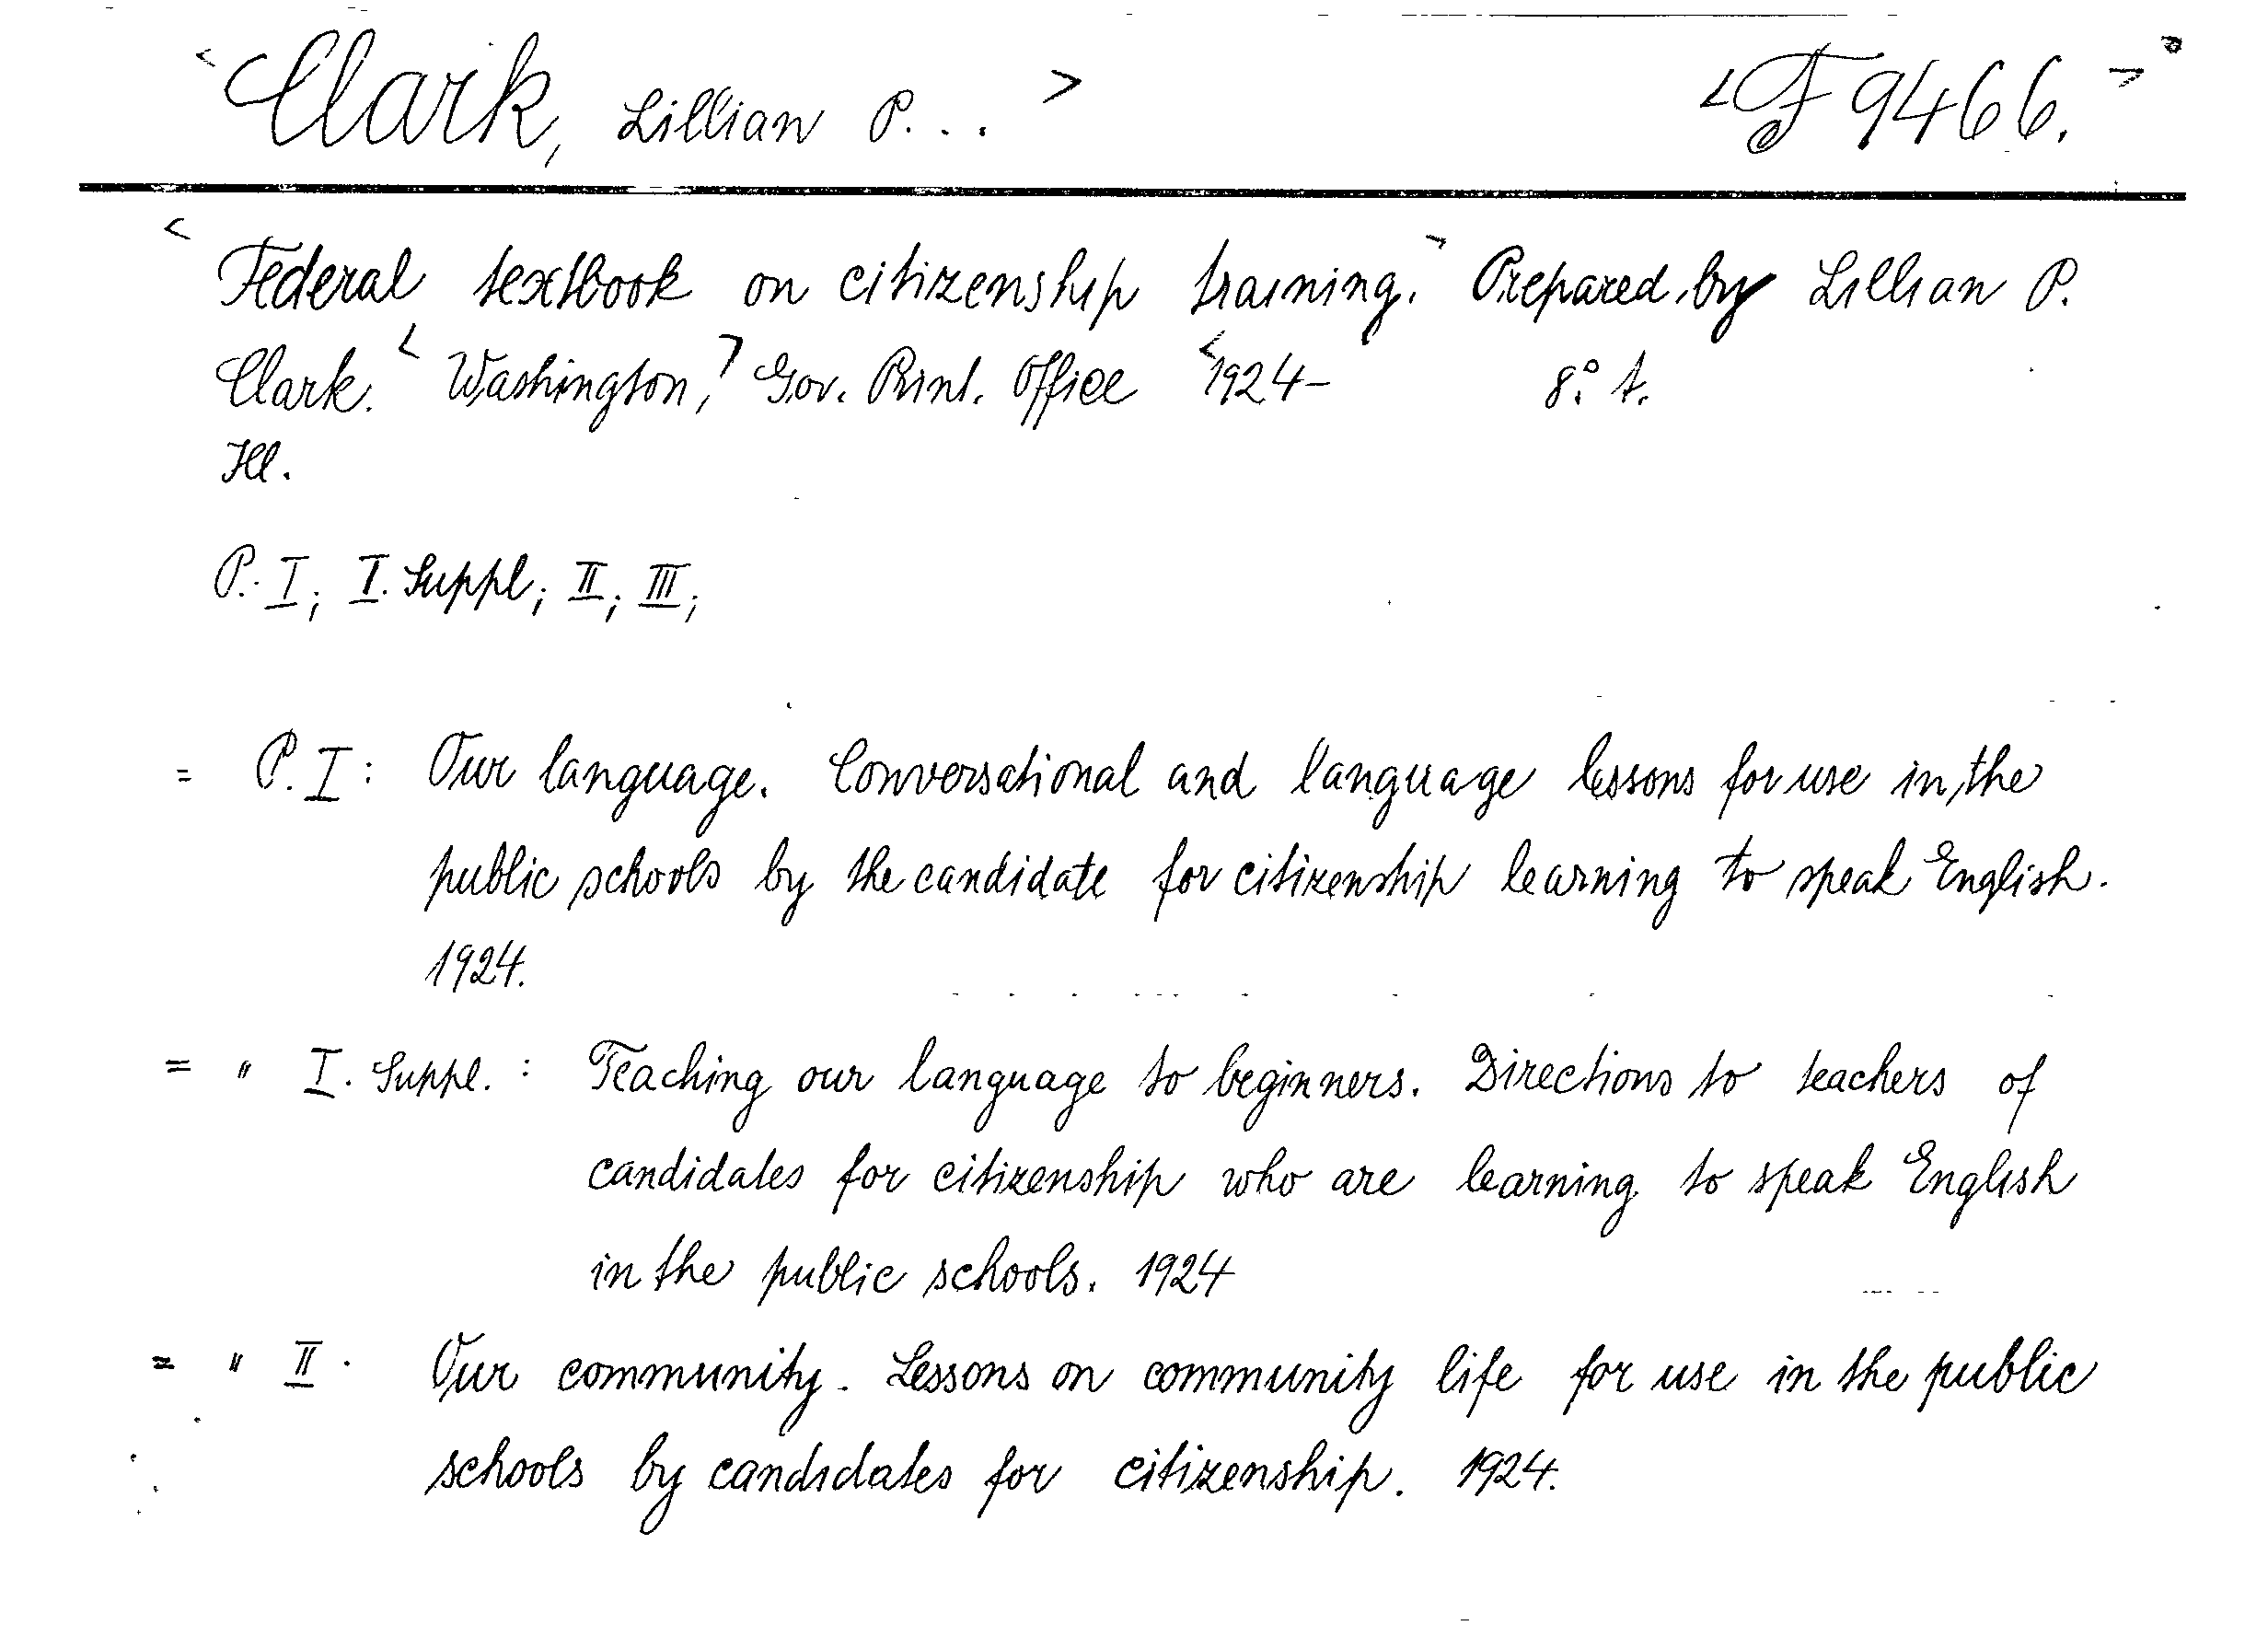 <Clark, Lillian P...> <F 9466.>
<Federal textbook on citizenship training.> Prepared by Lillian P.
Clark. <Washington,> Gov. Print. Office <1924– 8.° t.
Ill.
P. I; I. Suppl; II; III;
= P. I: Our language. Conversational and language lessons for use in the
public schools by the candidate for citizenship learning to speak English.
1924.
= " I. Suppl.: Teaching our language to beginners. Directions to teachers of
candidates for citizenship who are learning to speak English
in the public schools. 1924
= " II. Our community. Lessons on community life for use in the public
schools by candidates for citizenship. 1924.